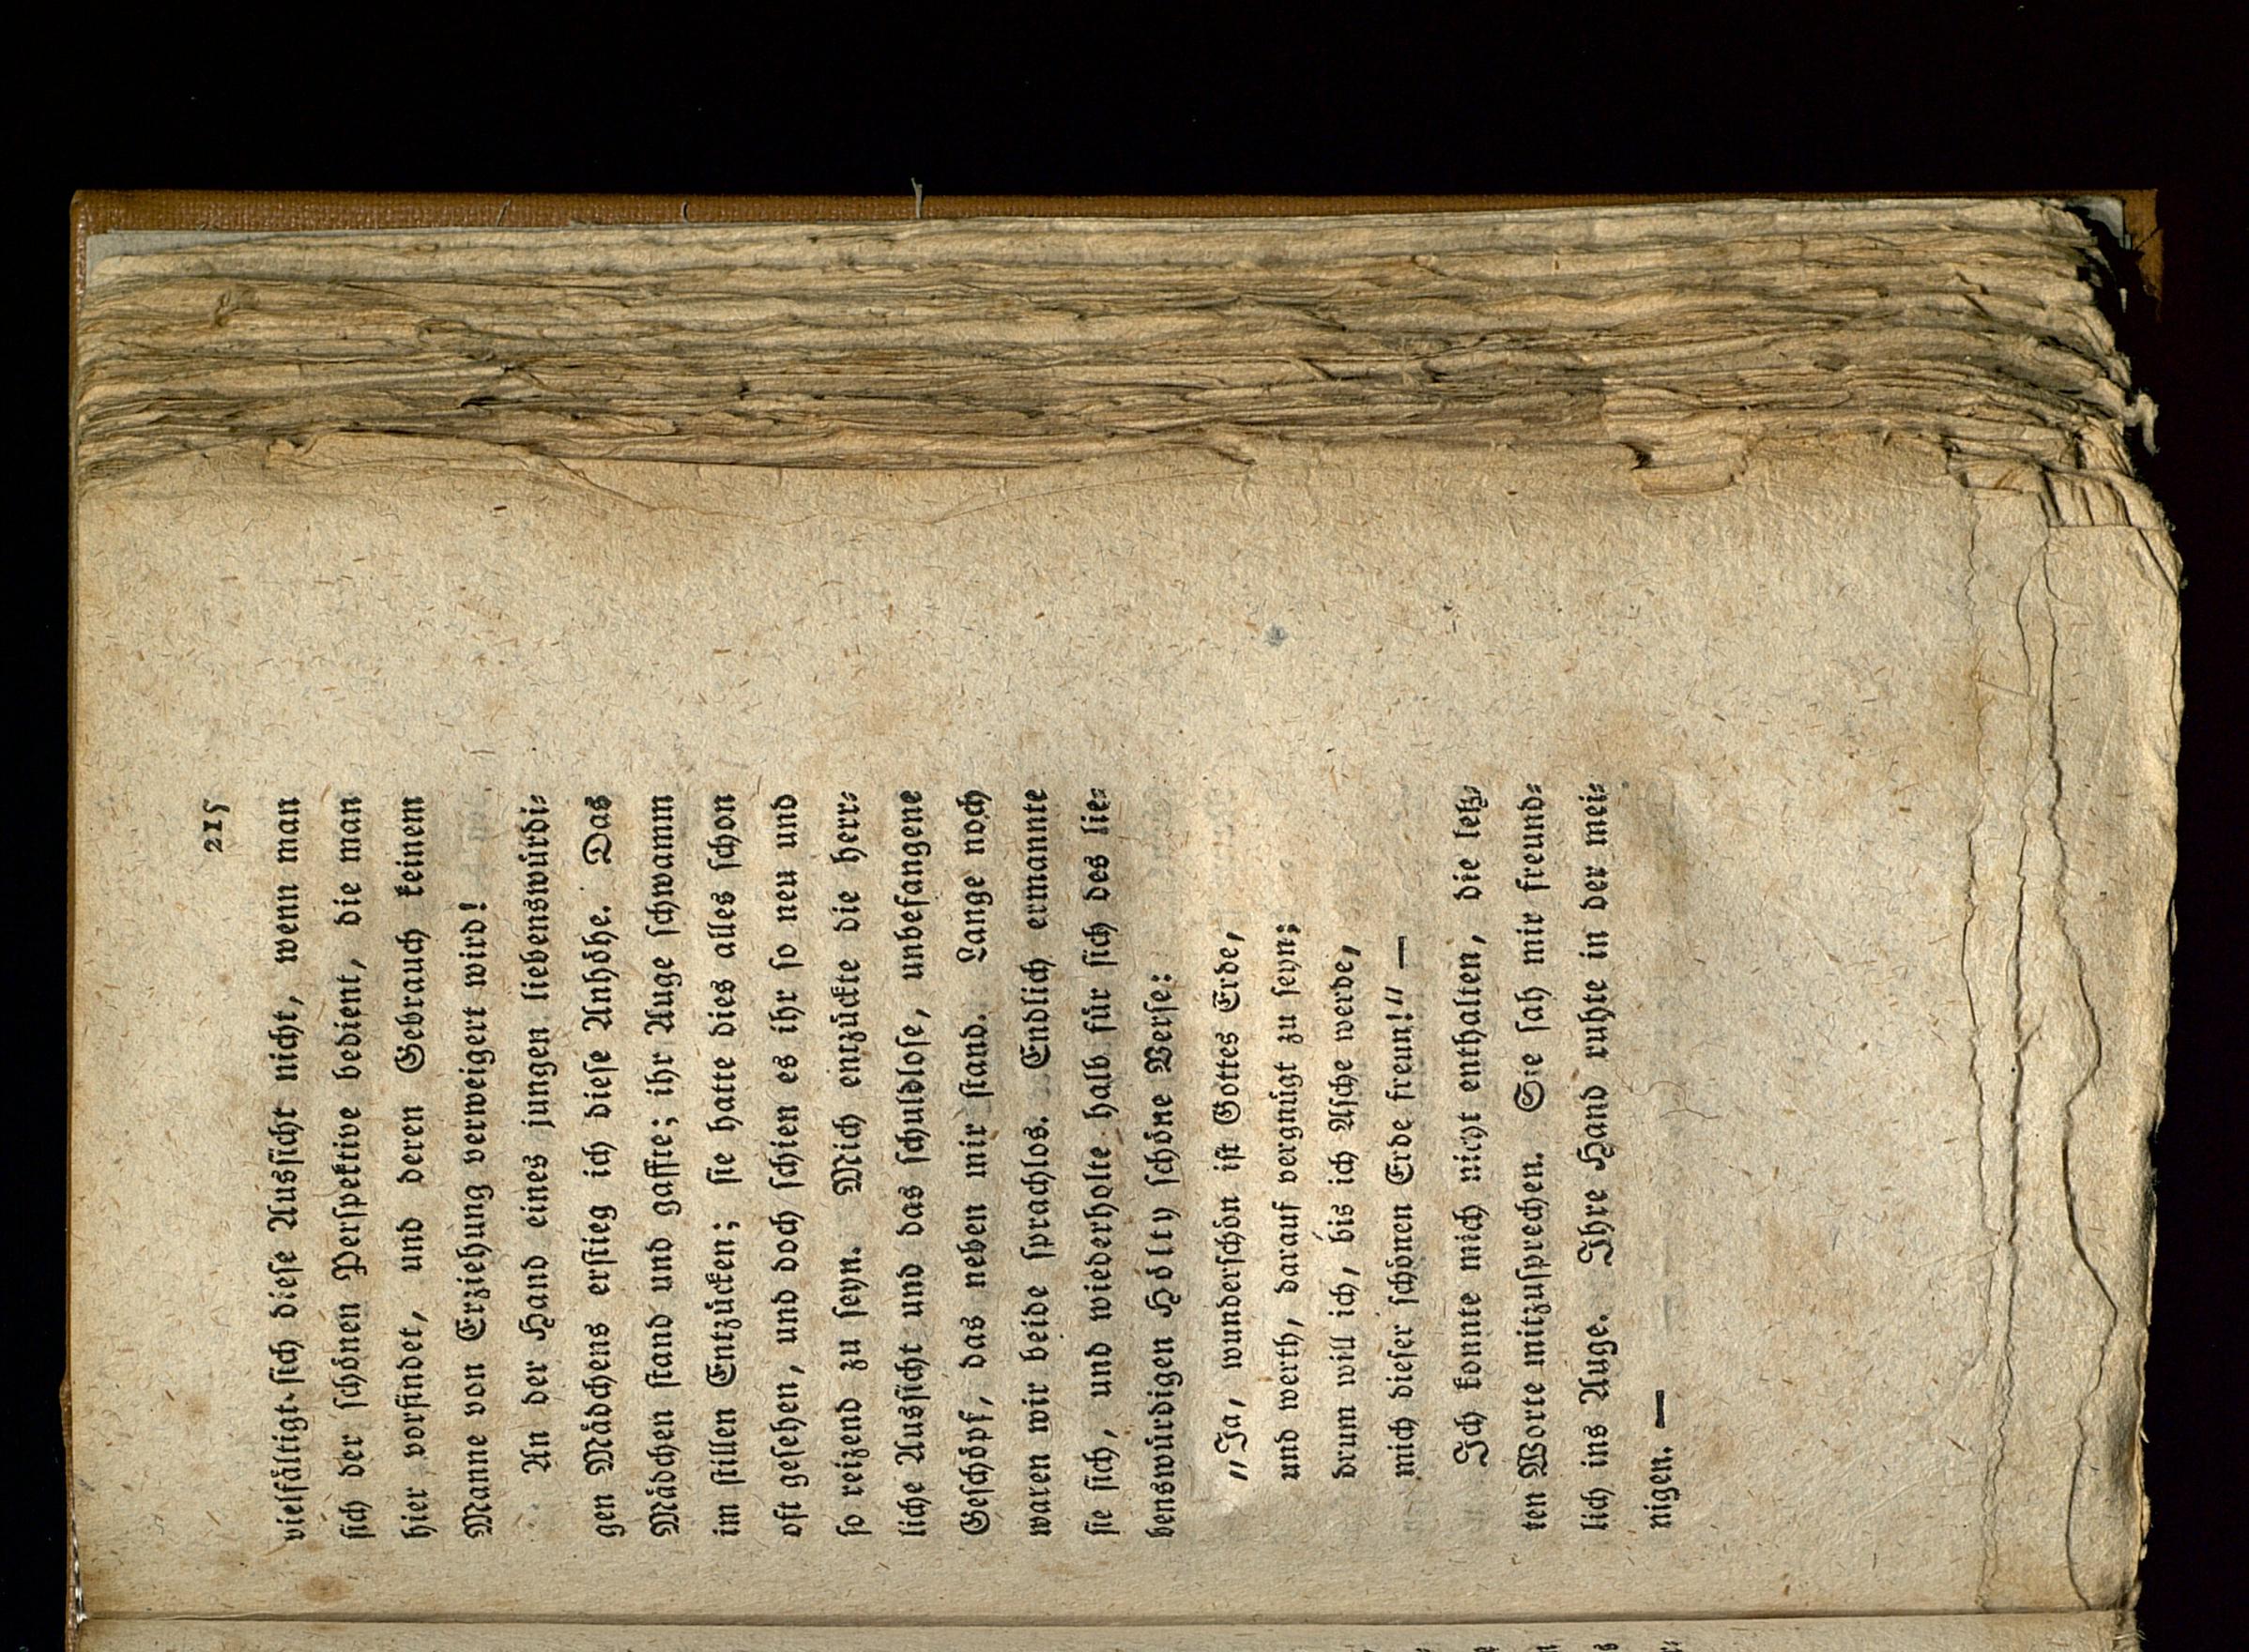 215
vielfältigt sich dieſe Ausſicht nicht, wenn man
ſich der ſchönen Perſpektive bedient, die man
hier vorfindet, und deren Gebrauch keinem
Manne von Erziehung verweigert wird!
An der Hand eines jungen liebenswürdi⸗
gen Mädchens erſtieg ich dieſe Anhöhe. Das
Mädchen ſtand und gaffte; ihr Auge ſchwamm
im ſtillen Entzücken; ſie hatte dies alles ſchon
oft geſehen, und doch ſchien es ihr ſo neu und
ſo reizend zu ſeyn. Mich entzückte die herr⸗
liche Ausſicht und das ſchuldloſe, unbefangene
Geſchöpf, das neben mir ſtand. Lange noch
waren wir beide ſprachlos. Endlich ermannte
ſie ſich, und wiederholte halb für ſich des lie⸗
benswürdigen Hölty ſchöne Verſe:
„Ja, wunderſchön iſt Gottes Erde,
und werth, darauf vergnügt zu ſeyn;
drum will ich, bis ich Aſche werde,
mich dieſer ſchönen Erde freun!“ —
Ich konnte mich nicht enthalten, die letz⸗
ten Worte mitzuſprechen. Sie ſah mir freund⸗
lich ins Auge. Ihre Hand ruhte in der mei⸗
nigen. —